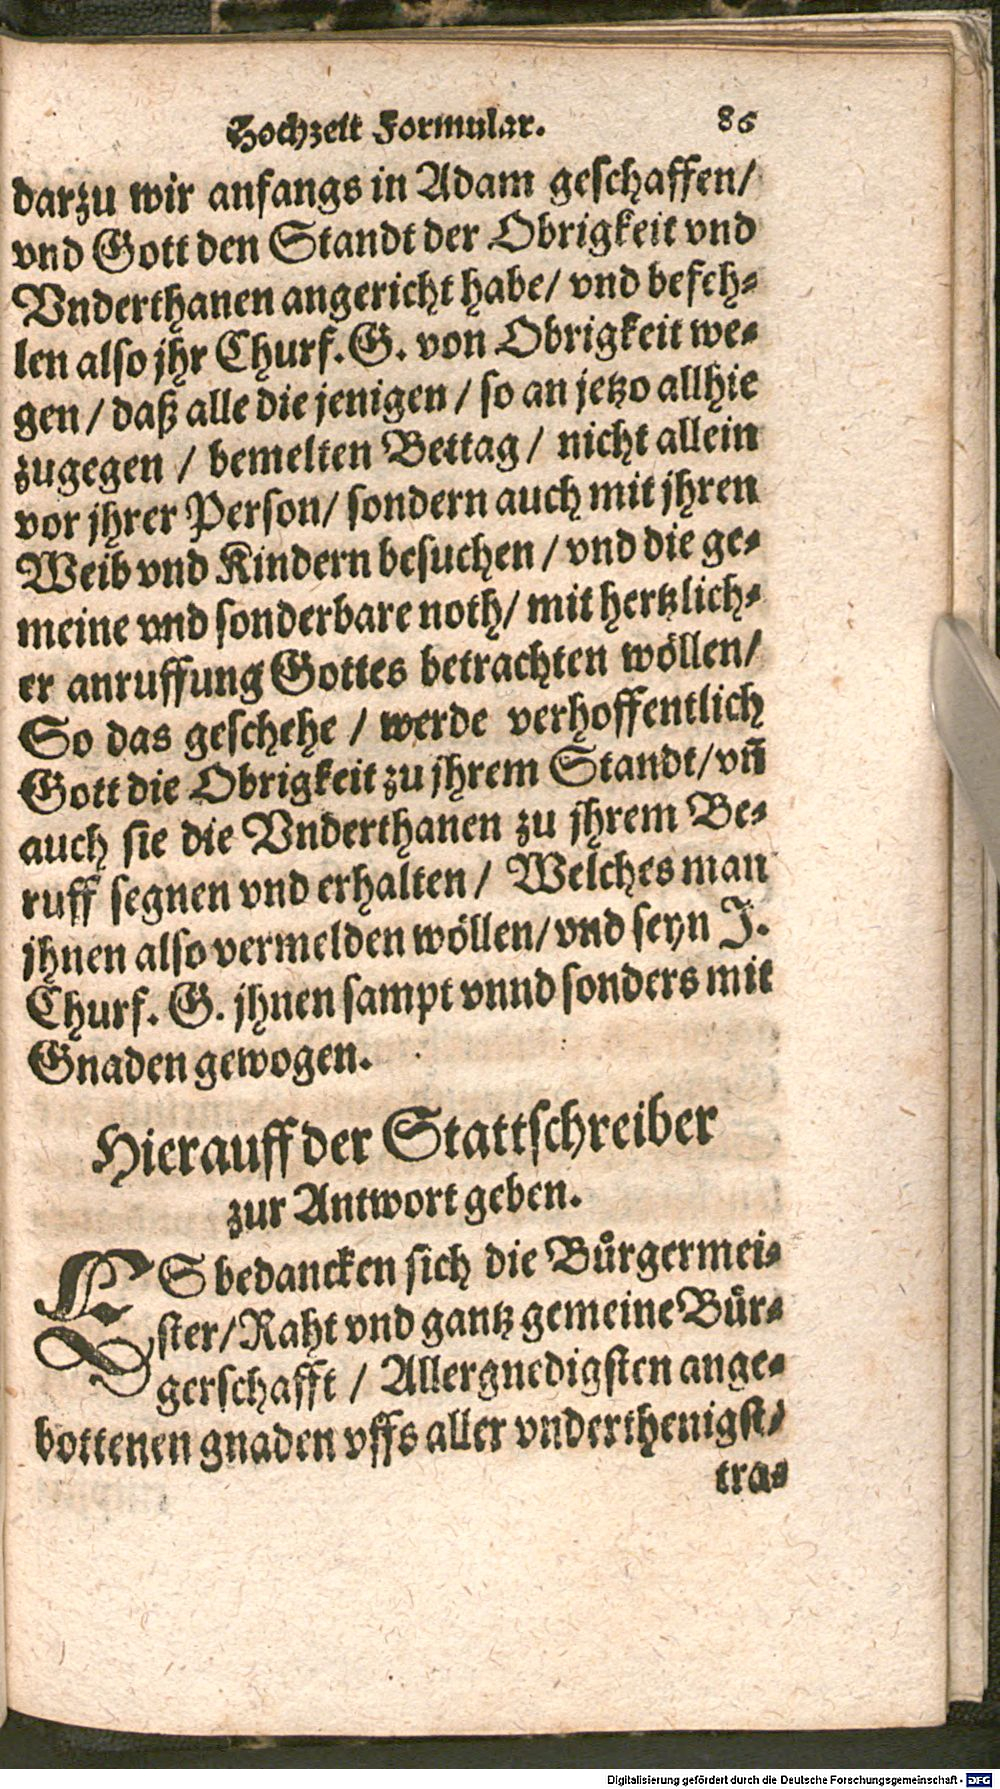 Hochzeit Formular. 86
darzu wir anfangs in Adam geschaffen/
vnd Gott den Standt der Obrigkeit vnd
Vnderthanen angericht habe/ vnd befeh-
len also jhr Churf. G. von Obrigkeit we-
gen / daß alle die jenigen / so an jetzo allhie
zugegen / bemelten Bettag / nicht allein
vor jhrer Person/ sondern auch mit jhren
Weib vnd Kindern besuchen / vnd die ge-
meine vnd sonderbare noth/ mit hertzlich-
er anruffung Gottes betrachten wöllen/
So das geschehe / werde verhoffentlich
Gott die Obrigkeit zu jhrem Standt/ vñ
auch sie die Vnderthanen zu jhrem Be-
ruff segnen vnd erhalten / Welches man
jhnen also vermelden wöllen/ vnd seyn J.
Churf. G. jhnen sampt vnnd sonders mit
Gnaden gewogen.
Hierauff der Stattschreiber
zur Antwort geben.
ES bedancken sich die Bürgermei-
ster/ Raht vnd gantz gemeine Bür-
gerschafft / Allergnedigsten ange-
bottenen gnaden vffs aller vnderthenigst/
tra-
Digitalisierung gefördert durch die Deutsche Forschungsgemeinschaft - DFG